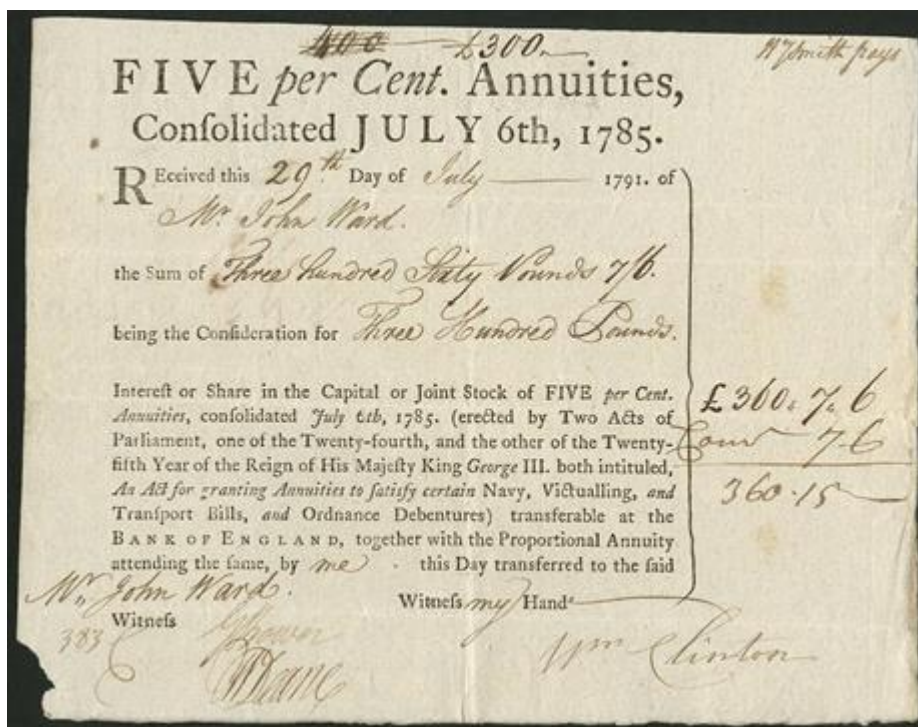 400 £300
W Smith pays
FIVE per Cent. Annuities,
Conſolidated JULY 6th, 1785.
REceived this 29th Day of July 1791. of
Mr John Ward.
the Sum of Three hundred Sixty Pounds 7/6.
being the Conſideration for Three Hundred Pounds.
Intereſt or Share in the Capital or Joint Stock of FIVE per Cent.
Annuities, conſolidated July 6th, 1785. (erected by Two Acts of
Parliament, one of the Twenty-fourth, and the other of the Twenty-
fifth Year of the Reign of His Majeſty King George III. both intituled,
An Act for granting Annuities to ſatisfy certain Navy, Victualling, and
Tranſport Bills, and Ordnance Debentures) transferable at the
BANK OF ENGLAND, together with the Proportional Annuity
attending the ſame, by me . this Day transferred to the ſaid
Mr. John Ward.
£360. 7. 6
7-6
360.15
Witneſs my Hand
Witneſs
383
Wm Clinton
WDeane